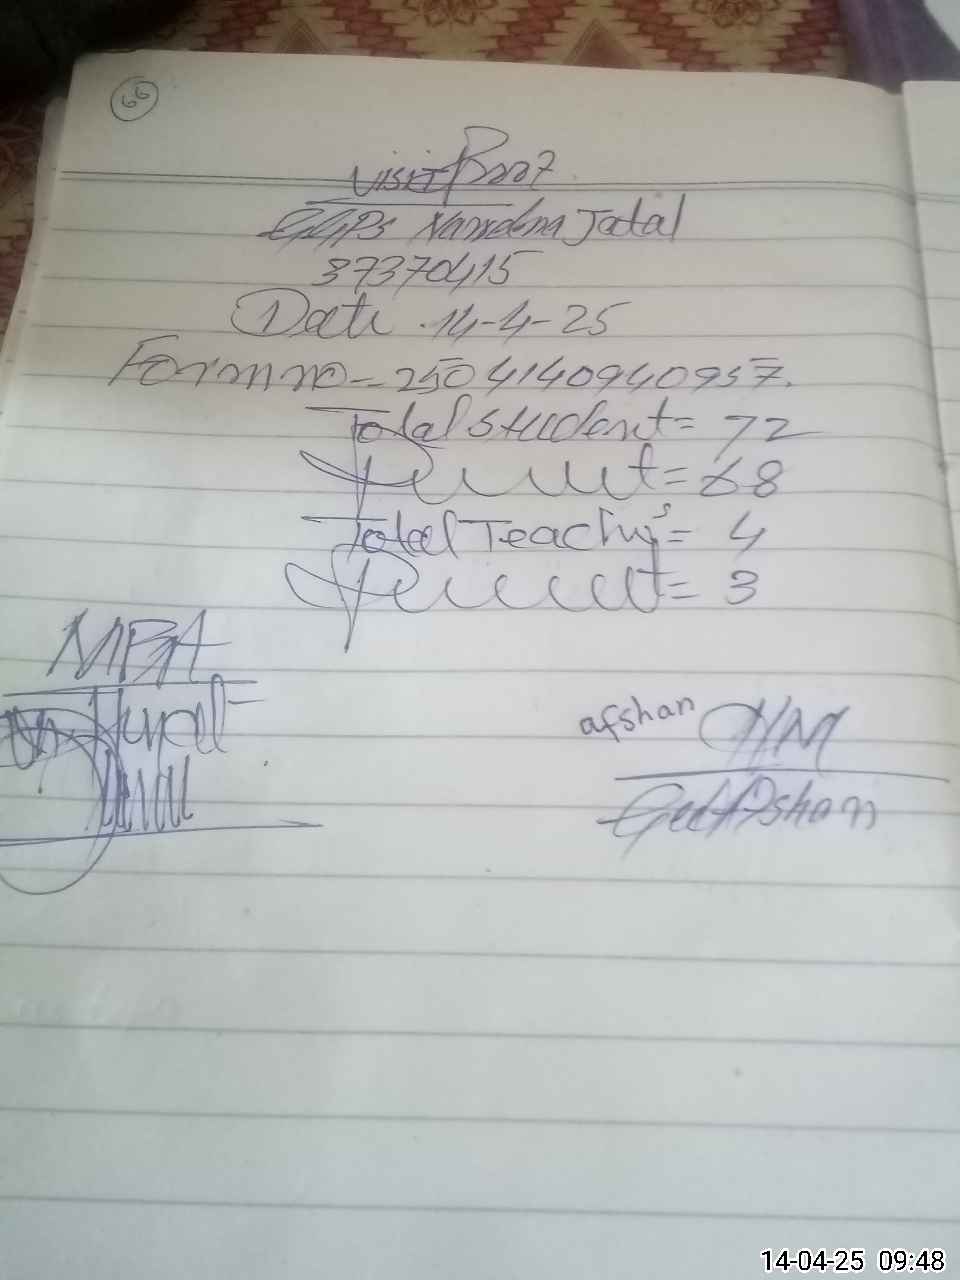 66
Visit
GGPS Jatal
37370415
Date 14-4-25
Form no - 2504140940957.
Total student = 72
Present = 68
Total Teacher's = 4
Present = 3
MEA
afshan HM
Afshan
14-04-25 09:48